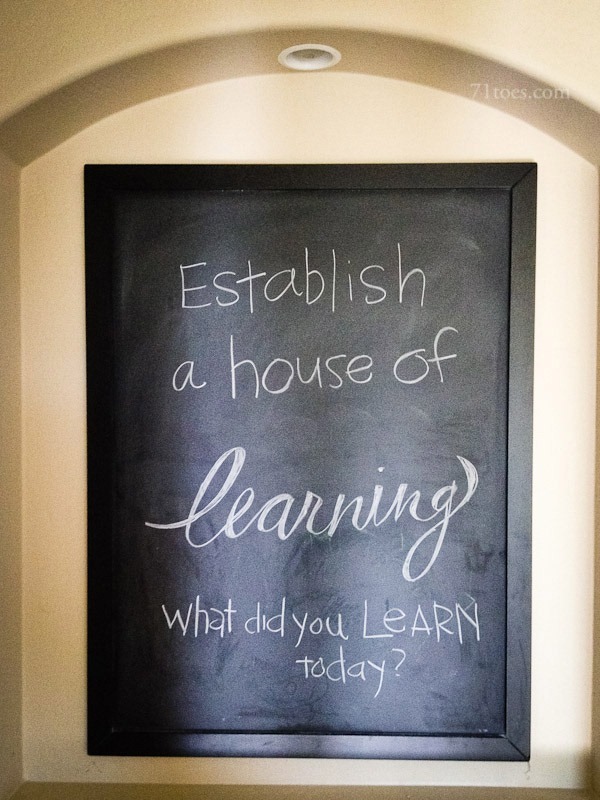 71toes.com
Establish
a house of
learning
What did you LeARN
today?